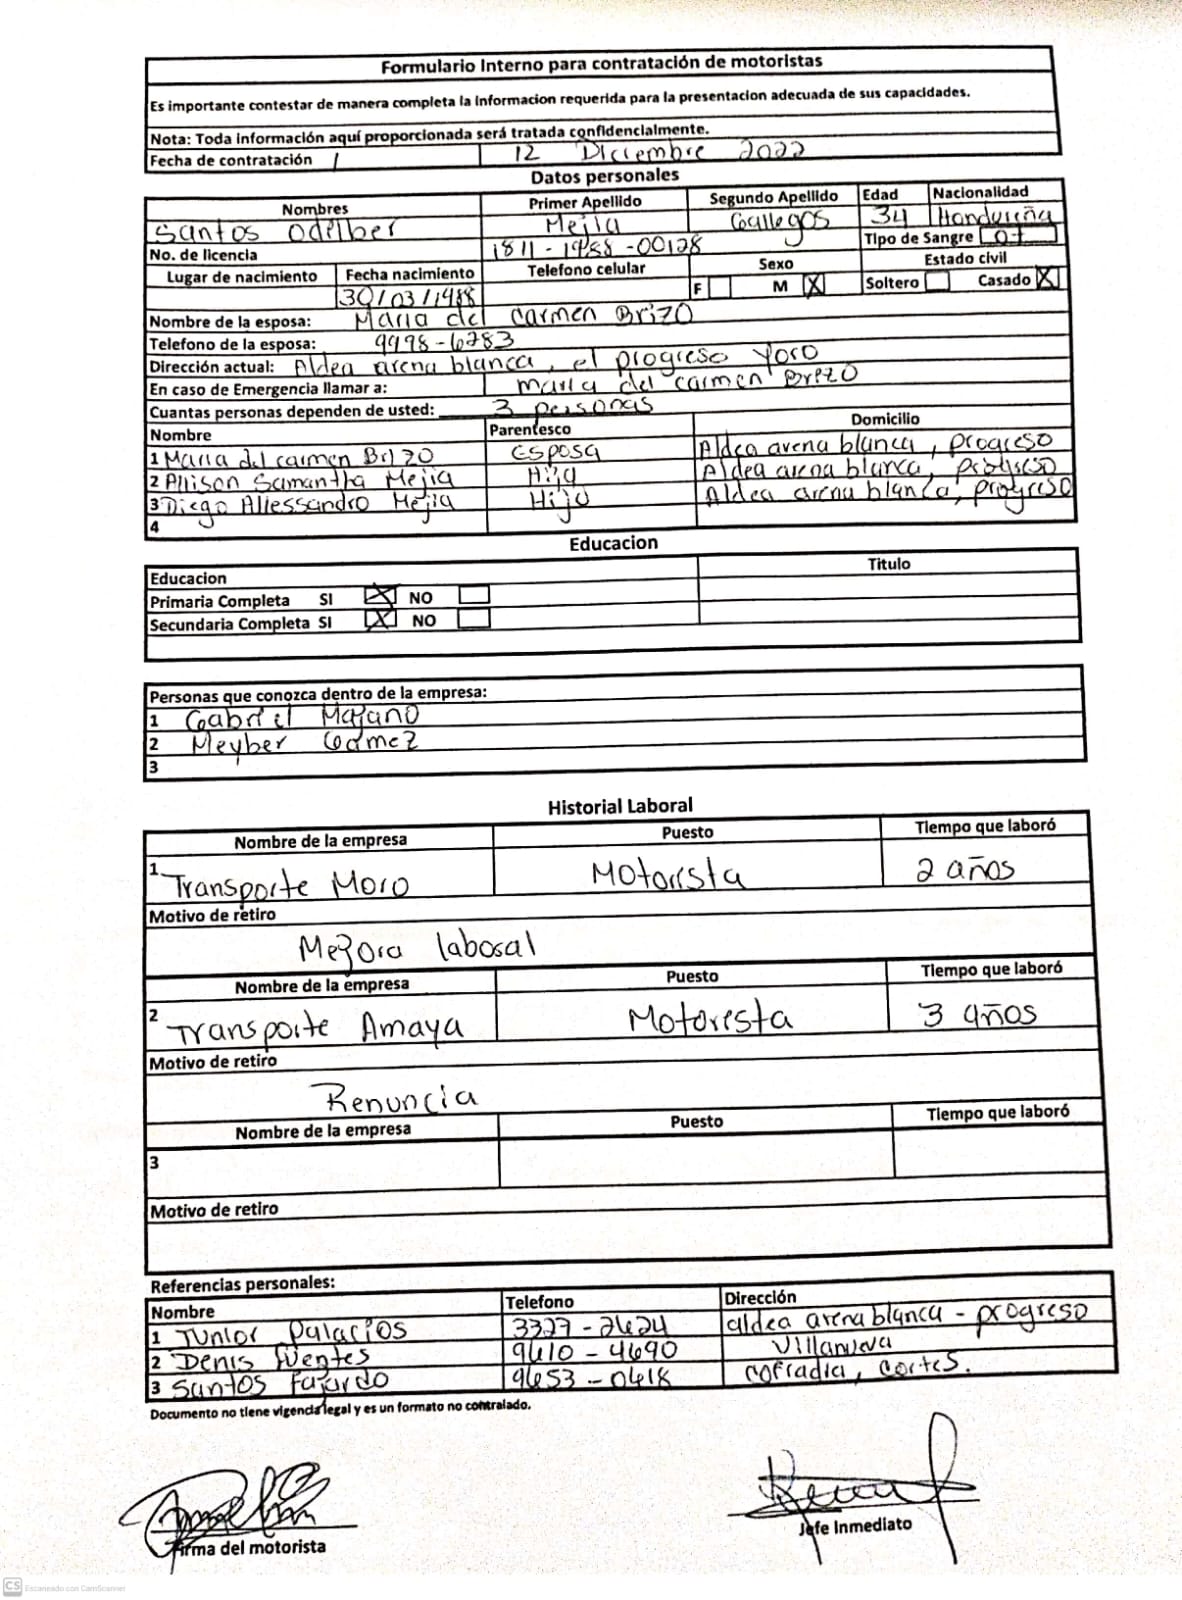 Formulario Interno para contratación de motoristas
Es importante contestar de manera completa la Informacion requerida para la presentacion adecuada de sus capacidades.
Nota: Toda información aquí proporcionada será tratada confidencialmente.
Fecha de contratación / 12 Diciembre 2022
Datos personales
Nombres Primer Apellido Segundo Apellido Edad Nacionalidad
Santos Odilber Mejia Gallegos 34 Hondureña
No. de licencia 1811-1988-00128 Tipo de Sangre O+
Lugar de nacimiento Fecha nacimiento Telefono celular Sexo Estado civil
30/03/1988 F M X Soltero Casado X
Nombre de la esposa: Maria del carmen Brizo
Telefono de la esposa: 9998-6783
Dirección actual: Aldea arena blanca, el progreso Yoro
En caso de Emergencia llamar a: maria del carmen Brizo
Cuantas personas dependen de usted: 3 personas
Nombre Parentesco Domicilio
1 Maria del carmen Brizo Esposa Aldea arena blanca, progreso
2 Allison Samantha Mejia Hija Aldea arena blanca, progreso
3 Diego Allessandro Mejia Hijo Aldea arena blanca, progreso
4
Educacion
Educacion Titulo
Primaria Completa SI X NO
Secundaria Completa SI X NO
Personas que conozca dentro de la empresa:
1 Gabriel Majano
2 Meyber Gamez
3
Historial Laboral
Nombre de la empresa Puesto Tiempo que laboró
1 Transporte Moro Motorista 2 años
Motivo de retiro
Mejora laboral
Nombre de la empresa Puesto Tiempo que laboró
2 Transporte Amaya Motorista 3 años
Motivo de retiro
Renuncia
Nombre de la empresa Puesto Tiempo que laboró
3
Motivo de retiro
Referencias personales:
Nombre Telefono Dirección
1 Junior Palacios 3327-2624 aldea arena blanca - progreso
2 Denis Fuentes 9610-4690 Villanueva
3 Santos Fajardo 9653-0618 cofradia, cortes.
Documento no tiene vigencia legal y es un formato no contralado.
Firma del motorista
Jefe Inmediato
CS Escaneado con CamScanner